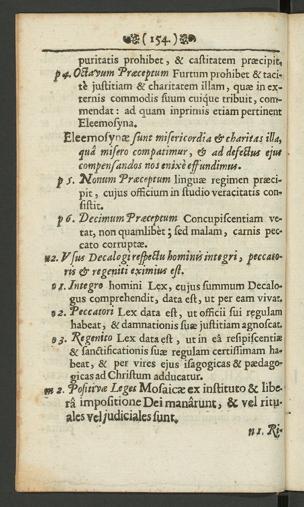 ( 154. )
puritatis prohibet, & castitatem præcipit.
p 4. Octavum Præceptum Furtum prohibet & taci-
tè justitiam & charitatem illam, quæ in ex-
ternis commodis suum cuique tribuit, com-
mendat: ad quam inprimis etiam pertinent
Eleemosyna.
Eleemosynæ sunt misericordia & charitas illa,
quâ misero compatimur, & ad defectus ejus
compensandos nos enixè effundimus.
p 5. Nonum Præceptum linguæ regimen præci-
pit, cujus officium in studio veracitatis con-
sistit.
p 6. Decimum Præceptum Concupiscentiam ve-
tat, non quamlibèt; sed malam, carnis pec-
cato corruptæ.
n2. Usus Decalogi respectu hominis integri, peccato-
ris & regeniti eximius est.
o 1. Integro homini Lex, cujus summum Decalo-
gus comprehendit, data est, ut per eam vivat.
o 2. Peccatori Lex data est, ut officii sui regulam
habeat, & damnationis suæ justitiam agnoscat.
o 3. Regenito Lex data est, ut in eâ resipiscentiæ
& sanctificationis suæ regulam certissimam ha-
beat, & per vires ejus isagogicas & pædago-
gicas ad Christum adducatur.
m 2. Positivæ Leges Mosaicæ ex instituto & libe-
râ impositione Dei manârunt, & vel ritu-
ales vel judiciales sunt.
n 1. Ri-